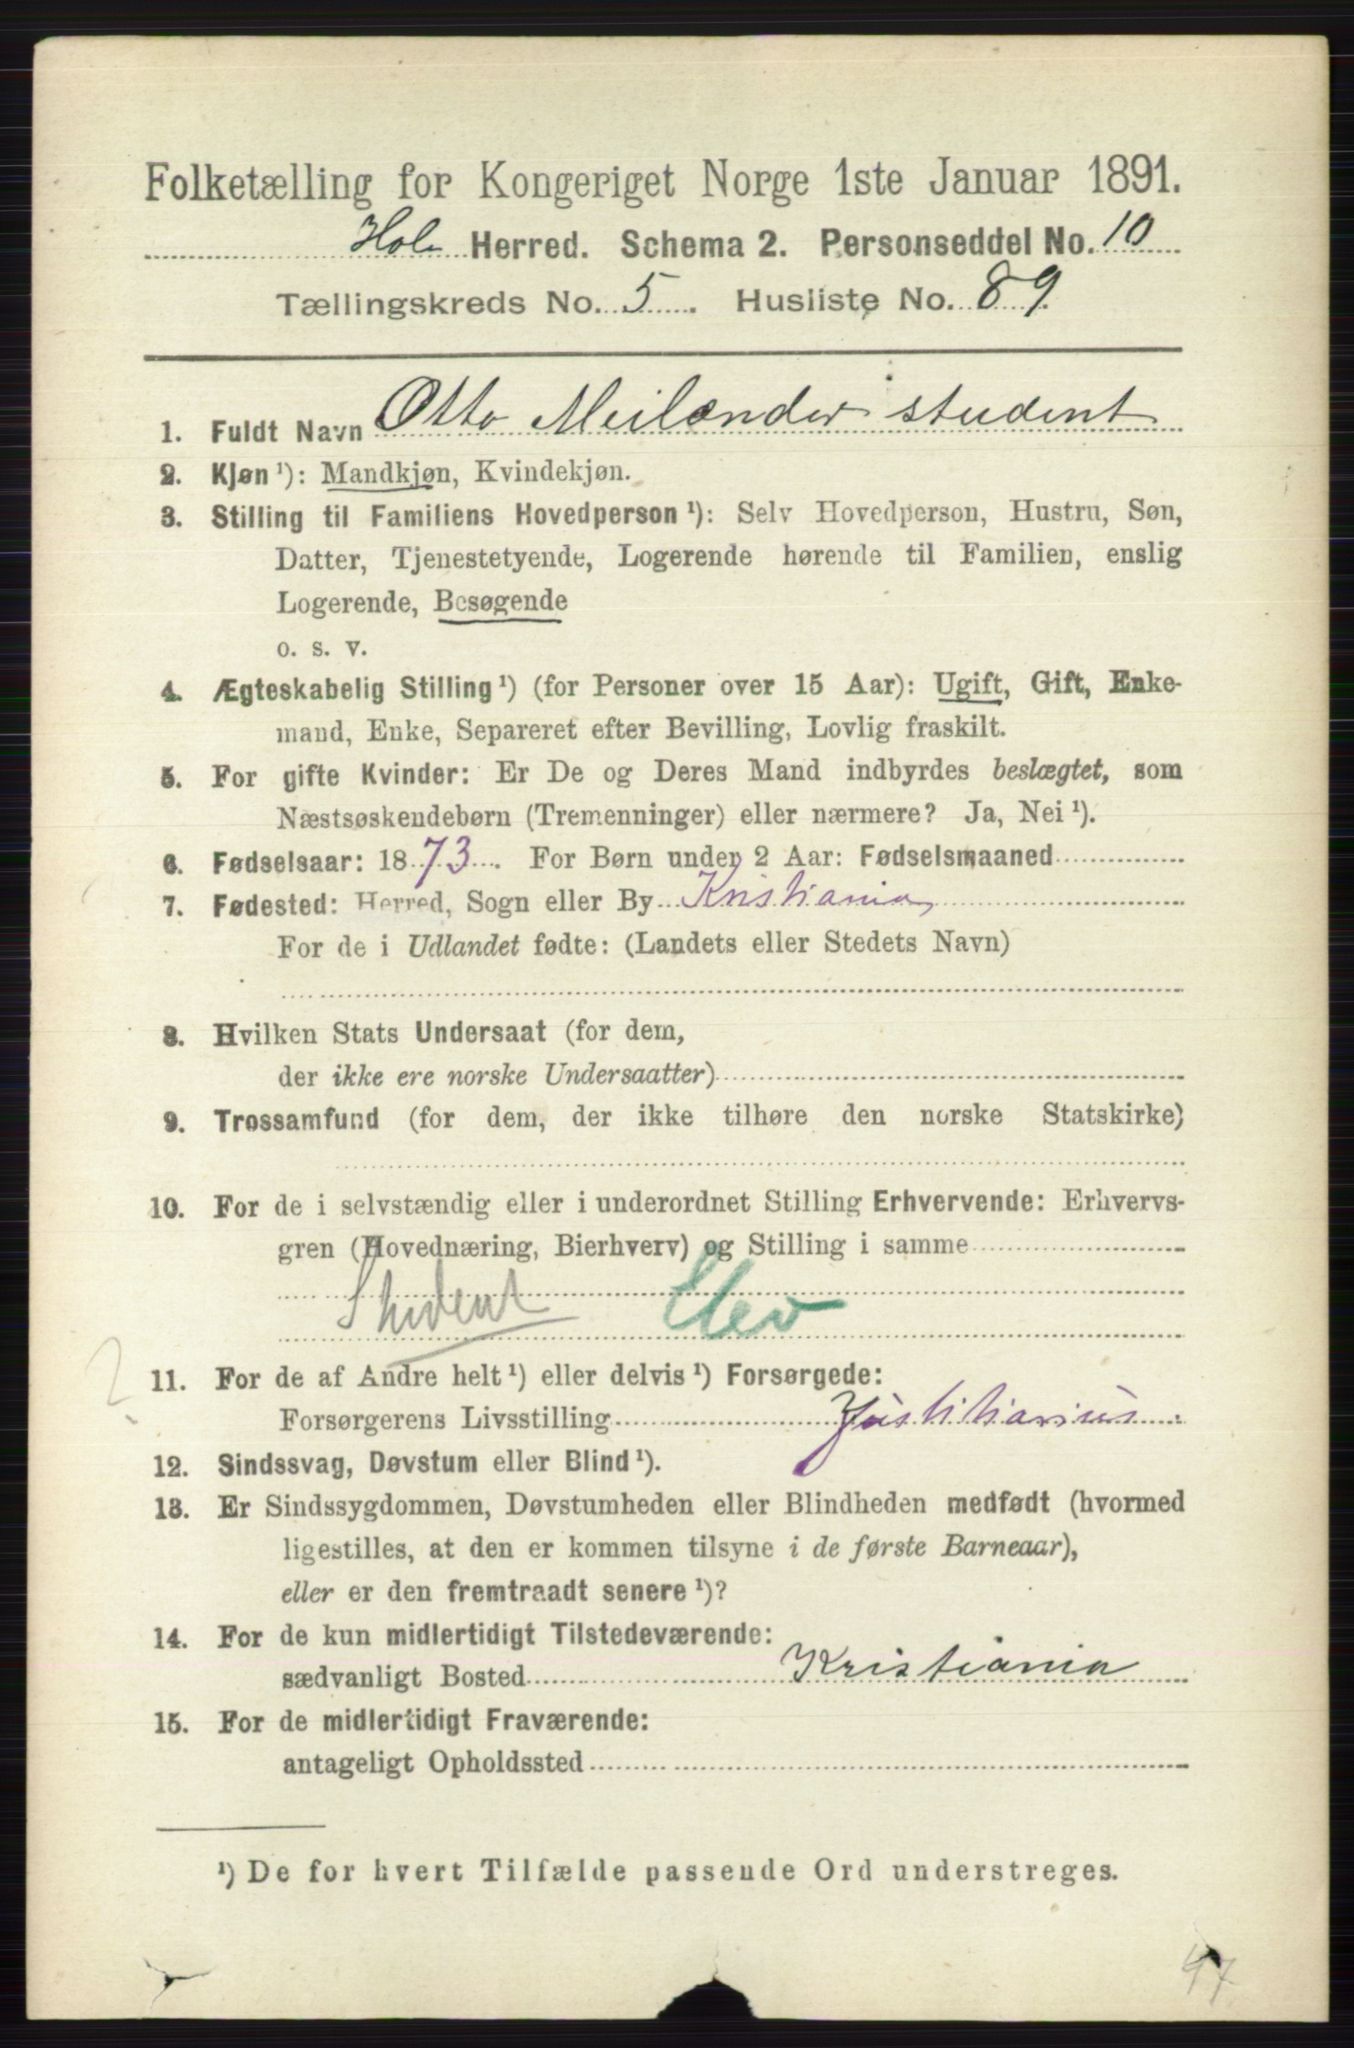 Folketælling for Kongeriget Norge 1ste Januar 1891.
Hole Herred. Schema 2. Personseddel No. 10
Tællingskreds No. 5. Husliste No. 89.
1. Fuldt Navn Otto Meilænder student
2. Kjøn ¹): Mandkjøn, Kvindekjøn.
3. Stilling til Familiens Hovedperson ¹): Selv Hovedperson, Hustru, Søn,
Datter, Tjenestetyende, Logerende hørende til Familien, enslig
Logerende, Besøgende
o. s. v.
4. Ægteskabelig Stilling ¹) (for Personer over 15 Aar): Ugift, Gift, Enke-
mand, Enke, Separeret efter Bevilling, Lovlig fraskilt.
5. For gifte Kvinder: Er De og Deres Mand indbyrdes beslægtet, som
Næstsøskendebørn (Tremenninger) eller nærmere? Ja, Nei ¹).
6. Fødselsaar: 1873. For Børn under 2 Aar: Fødselsmaaned
7. Fødested: Herred, Sogn eller By Kristiania
For de i Udlandet fødte: (Landets eller Stedets Navn)
8. Hvilken Stats Undersaat (for dem,
der ikke ere norske Undersaatter)
9. Trossamfund (for dem, der ikke tilhøre den norske Statskirke)
10. For de i selvstændig eller i underordnet Stilling Erhvervende: Erhvervs-
gren (Hovednæring, Bierhverv) og Stilling i samme
Student Elev
?
11. For de af Andre helt ¹) eller delvis ¹) Forsørgede:
Forsørgerens Livsstilling Justitiarius.
12. Sindssvag, Døvstum eller Blind ¹).
13. Er Sindssygdommen, Døvstumheden eller Blindheden medfødt (hvormed
ligestilles, at den er kommen tilsyne i de første Barneaar),
eller er den fremtraadt senere ¹)?
14. For de kun midlertidigt Tilstedeværende:
sædvanligt Bosted Kristiania
15. For de midlertidigt Fraværende:
antageligt Opholdssted
¹) De for hvert Tilfælde passende Ord understreges.
47